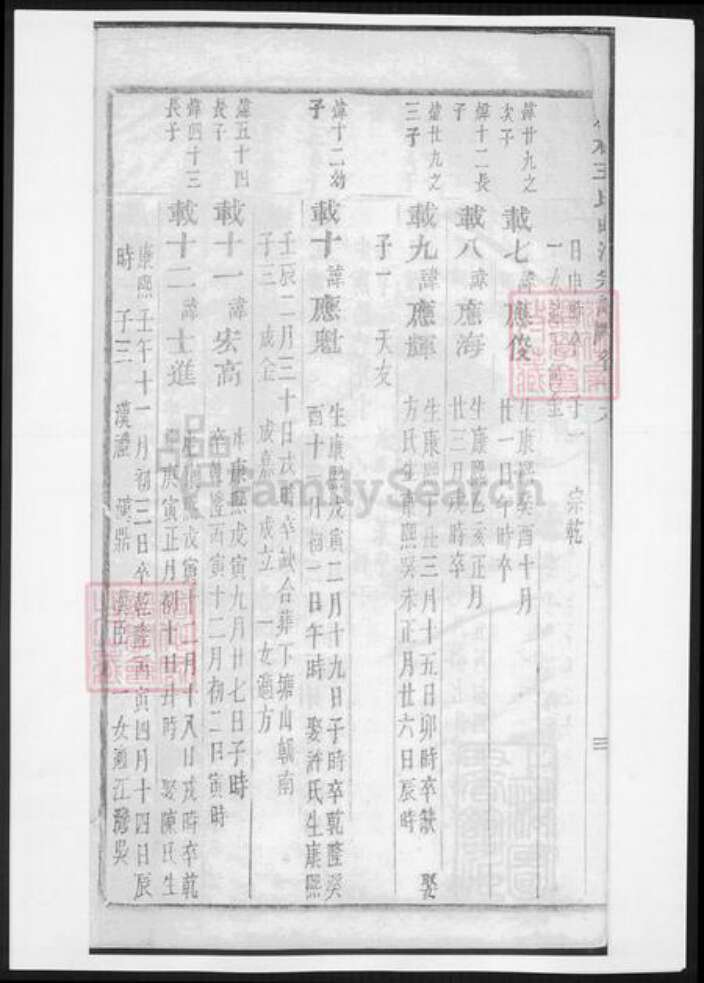 日申時卒 子一 宗乾
一女
煒廿九之
次子
載七 諱應俊 生康熙癸酉十月
廿一日午時卒
煒十二長
子
載八 諱應海 生康熙乙亥正月
廿三日戌時卒
煒廿九之
三子
載九 諱應輝 生康熙 三月十五日卯時卒缺 娶
方氏生康熙癸未正月廿六日辰時
子一 天友
煒十二幼
子
載十 諱應魁 生康熙戊寅二月十九日子時卒乾隆癸
酉十 月初一日午時 娶許氏生康熙
壬辰二月三十日戌時卒缺合葬下塘山朝南
子三 成金 成嘉 成立 一女適方
煒五十四
長子
載十一 諱宏高 生康熙戊寅九月廿七日子時
卒乾隆丙寅十二月初二日寅時
煒四十三
長子
載十二 諱士進 生康熙戊寅十二月十八日戌時卒乾
隆庚寅正月初十日丑時 娶陳氏生
康熙壬午十一月初三日卒乾隆丙寅四月十四日辰
時 子三 漢禮 漢鼎 漢臣 一女適江灣吳
FamilySearch